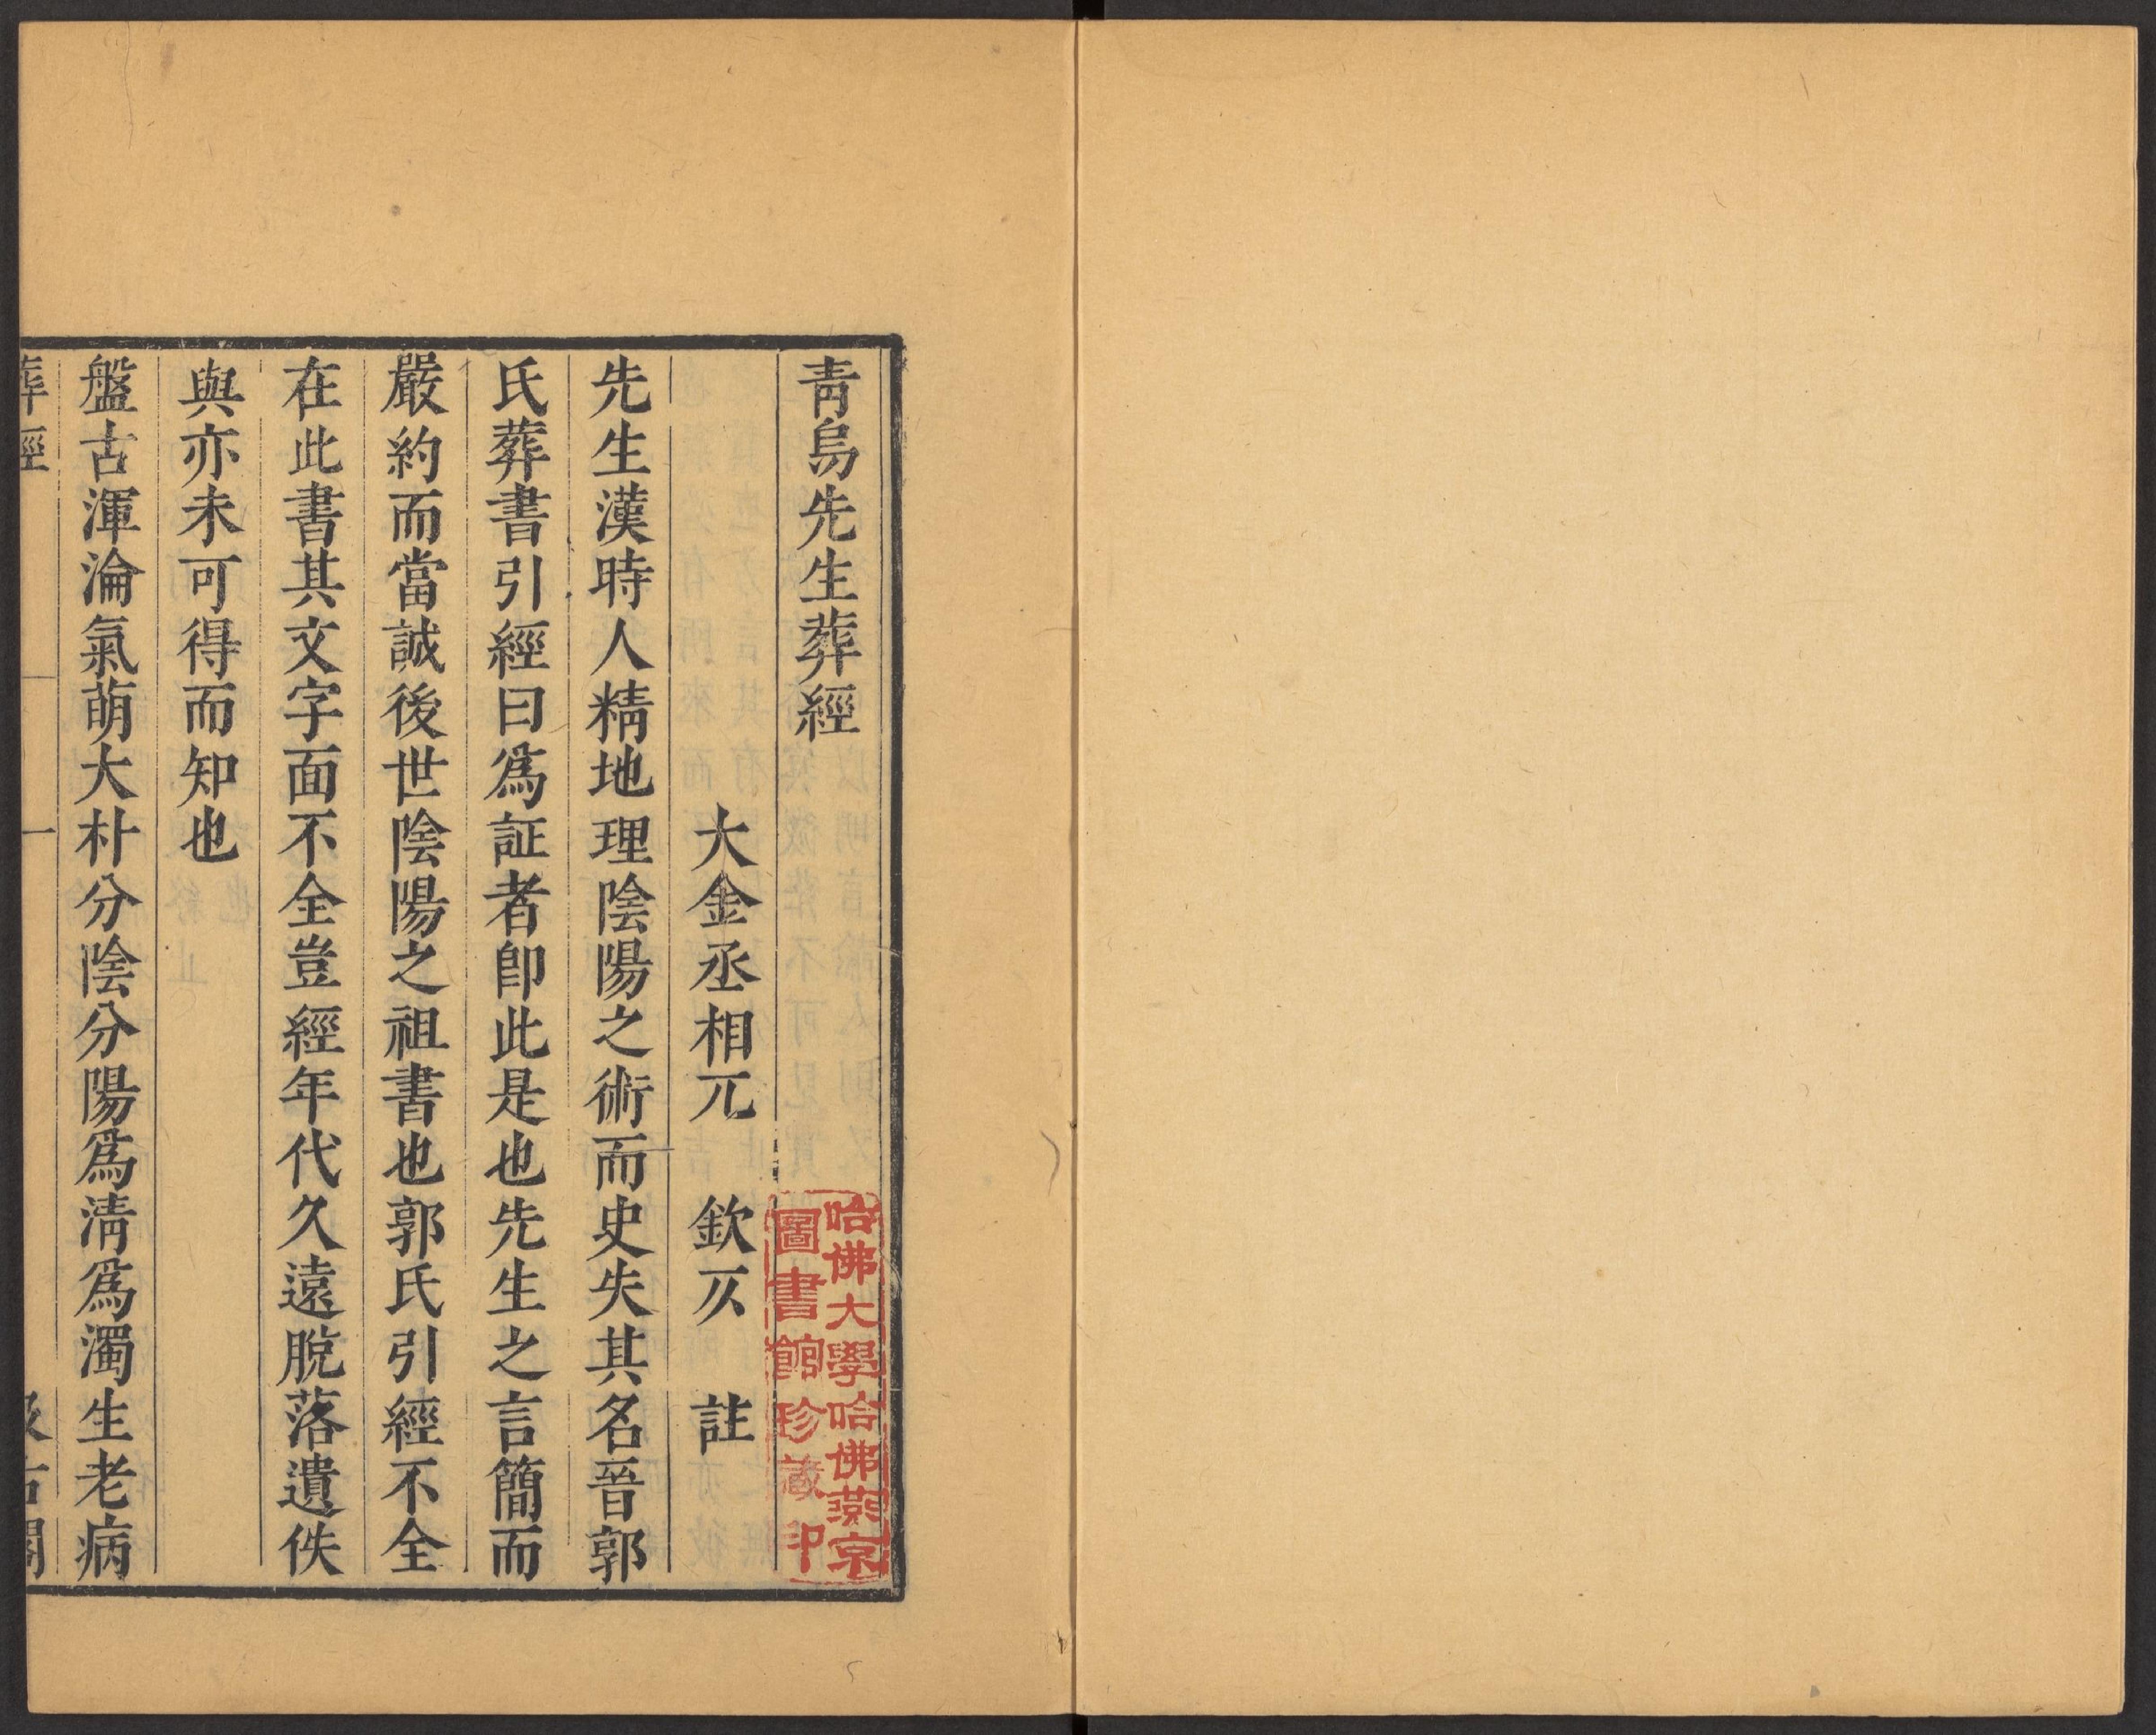 青烏先生葬經
大金丞相兀　欽仄　註
先生漢時人精地理陰陽之術而史失其名晉郭
氏葬書引經曰爲証者卽此是也先生之言簡而
嚴約而當誠後世陰陽之祖書也郭氏引經不全
在此書其文字面不全豈經年代久遠脫落遺佚
與亦未可得而知也
盤古渾淪氣萌大朴分陰分陽爲淸爲濁生老病
葬經
一
汲古閣
哈佛大學哈佛燕京
圖書館珍藏印